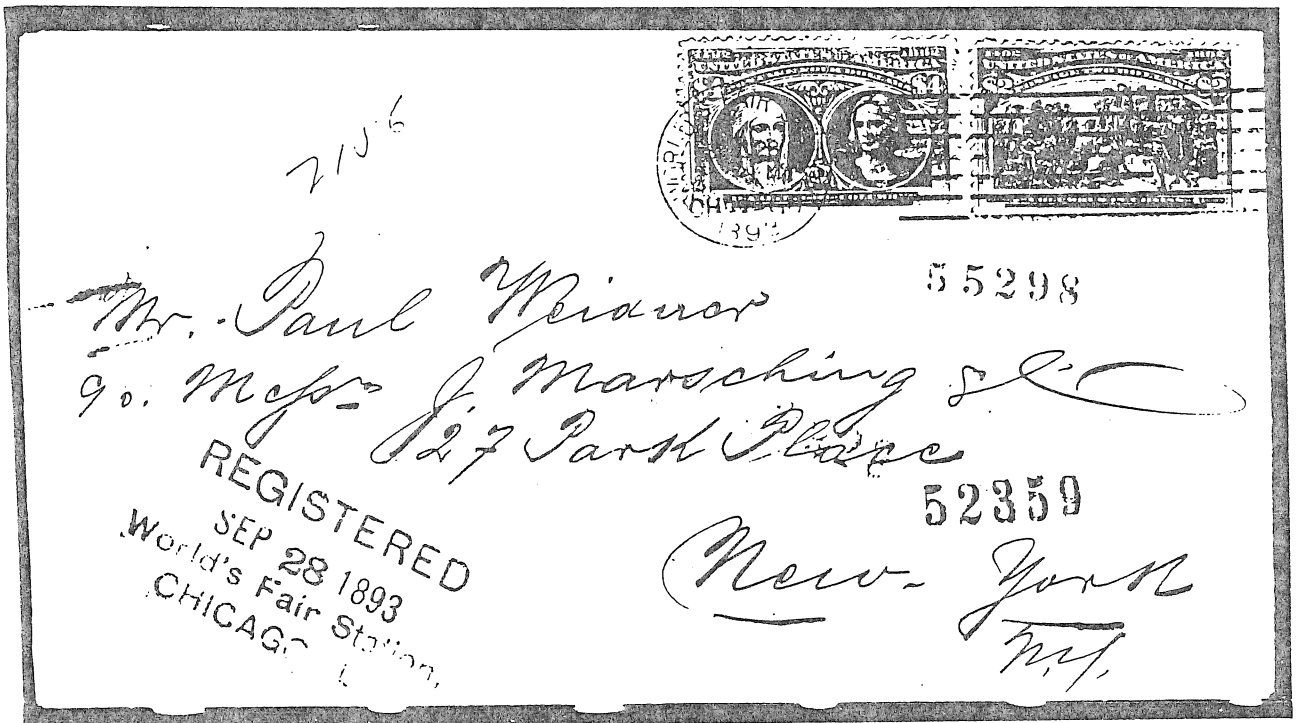 UNITED STATES OF AMERICA
$4
UNITED STATES OF AMERICA
$2 $2
1893
2156
55298
Mr. Paul Weidner
c/o. Messrs J. Marsching & Co
27 Park Place
52359
New-York
N.Y.
REGISTERED
SEP 28 1893
World's Fair Station,
CHICAGO